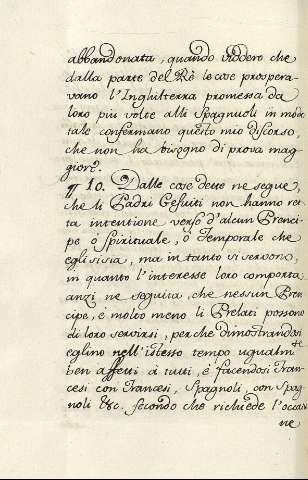 abbandonata, quando viddero che
dalla parte del Rè le cose prospera-
vano l'Inghilterra promessa da
loro più volte alli Spagnuoli in modo
tale confermano questo mio discorso,
che non ha bisogno di prova mag-
giore.
¶ 10. Dalle cose dette ne segue,
che li Padri Gesuiti non hanno ret-
ta intentione verso d'alcun Prenci-
pe ò Spirituale, ò Temporale che
egli si sia, ma in tanto vi servono,
in quanto l'interesse loro comporta
anzi ne seguita, che nessun Pren-
cipe, è molto meno li Prelati possono
di loro servirsi, perche dimostrandosi
eglino nell'istesso tempo ugualmte
ben affetti à tutti, è facendosi Fran-
cesi con Francesi, Spagnoli, con Spag-
noli &c. secondo che richiede l'occasio
ne